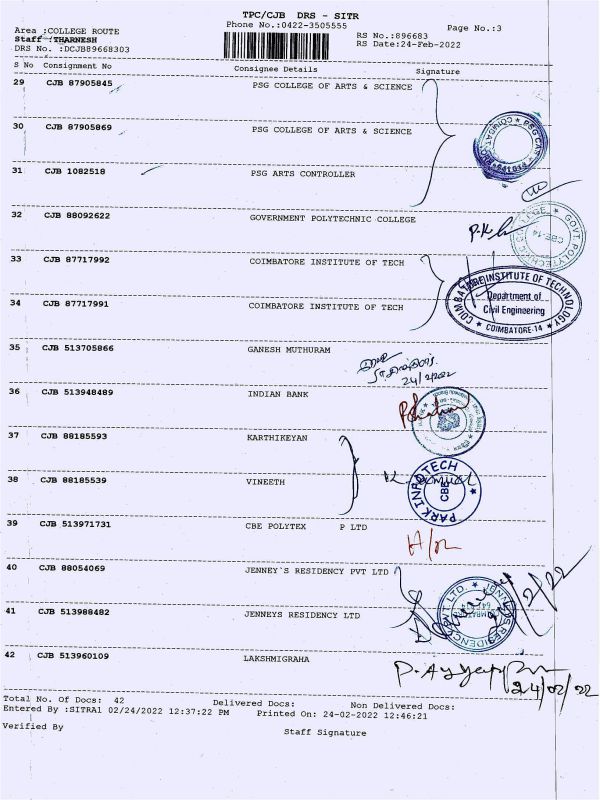 TPC/CJB DRS - SITR
Phone No.:0422-3505555
Page No.:3
Area :COLLEGE ROUTE
Staff :THARNESH
DRS No. :DCJB89668303
RS No.:896683
RS Date:24-Feb-2022
S No Consignment No Consignee Details Signature
29 CJB 87905845 PSG COLLEGE OF ARTS & SCIENCE
30 CJB 87905869 PSG COLLEGE OF ARTS & SCIENCE
31 CJB 1082518 PSG ARTS CONTROLLER
32 CJB 88092622 GOVERNMENT POLYTECHNIC COLLEGE
33 CJB 87717992 COIMBATORE INSTITUTE OF TECH
34 CJB 87717991 COIMBATORE INSTITUTE OF TECH
COIMBATORE INSTITUTE OF TECHNOLOGY
Department of
Civil Engineering
* COIMBATORE-14 *
35 CJB 513705866 GANESH MUTHURAM
24/2/2022
36 CJB 513948489 INDIAN BANK
37 CJB 88185593 KARTHIKEYAN
38 CJB 88185539 VINEETH
PARK INFOTECH
CBE
39 CJB 513971731 CBE POLYTEX P LTD
40 CJB 88054069 JENNEY`S RESIDENCY PVT LTD
41 CJB 513988482 JENNEYS RESIDENCY LTD
42 CJB 513960109 LAKSHMIGRAHA
24/02/22
Total No. Of Docs: 42 Delivered Docs: Non Delivered Docs:
Entered By :SITRA1 02/24/2022 12:37:22 PM Printed On: 24-02-2022 12:46:21
Verified By Staff Signature